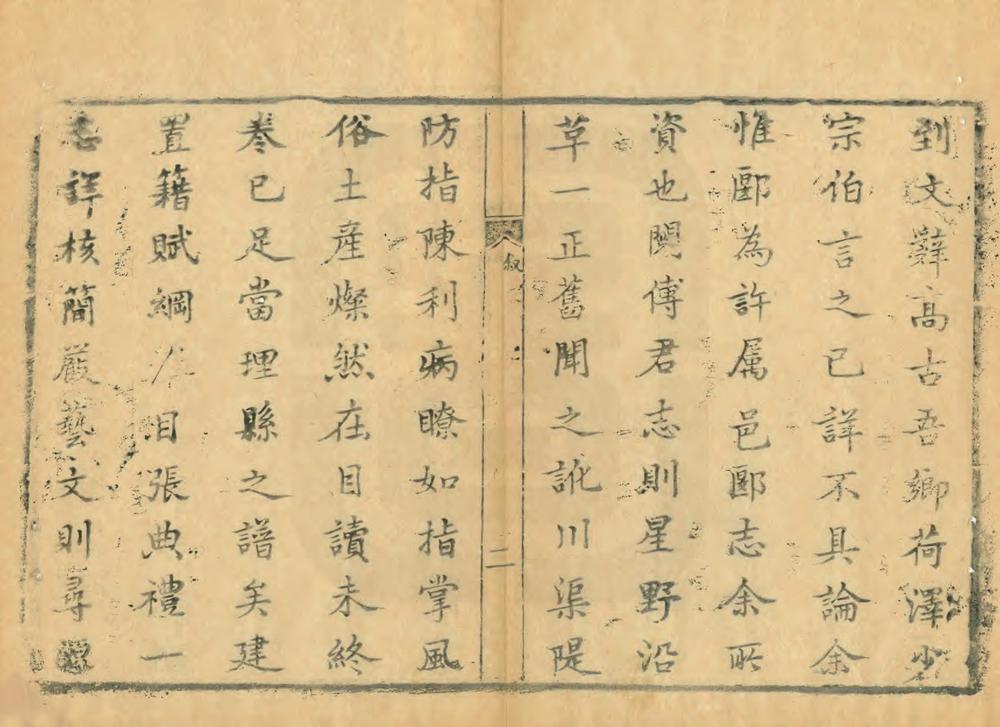 到文辭高古吾鄉荷澤少
宗伯言之已詳不具論余
惟郾為許属邑郾志余所
資也閱傅君志則星野沿
革一正舊聞之訛川渠隄
叙
二
防指陳利病瞭如指掌風
俗土產燦然在目讀未終
卷已足當理縣之譜矣建
置籍賦綱 目張典禮一
志詳核簡嚴藝文則尋